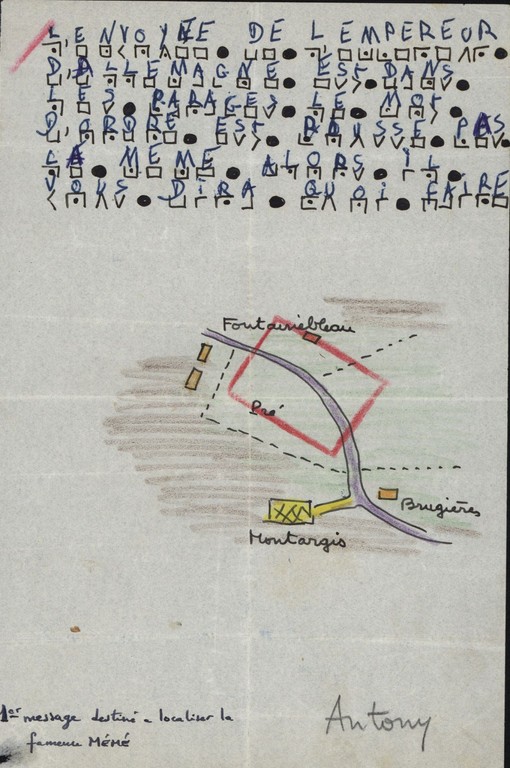 L'ENVOYÉE DE L'EMPEREUR
D'ALLEMAGNE EST DANS
LES PARAGES LE MOT
D'ORDRE EST POUSSE PAS
LA MÉMÉ ALORS IL
VOUS DIRA QUOI FAIRE
Fontainebleau
Pré
Brugières
Montargis
1er message destiné a localiser la
fameuse MÉMÉ
Antony